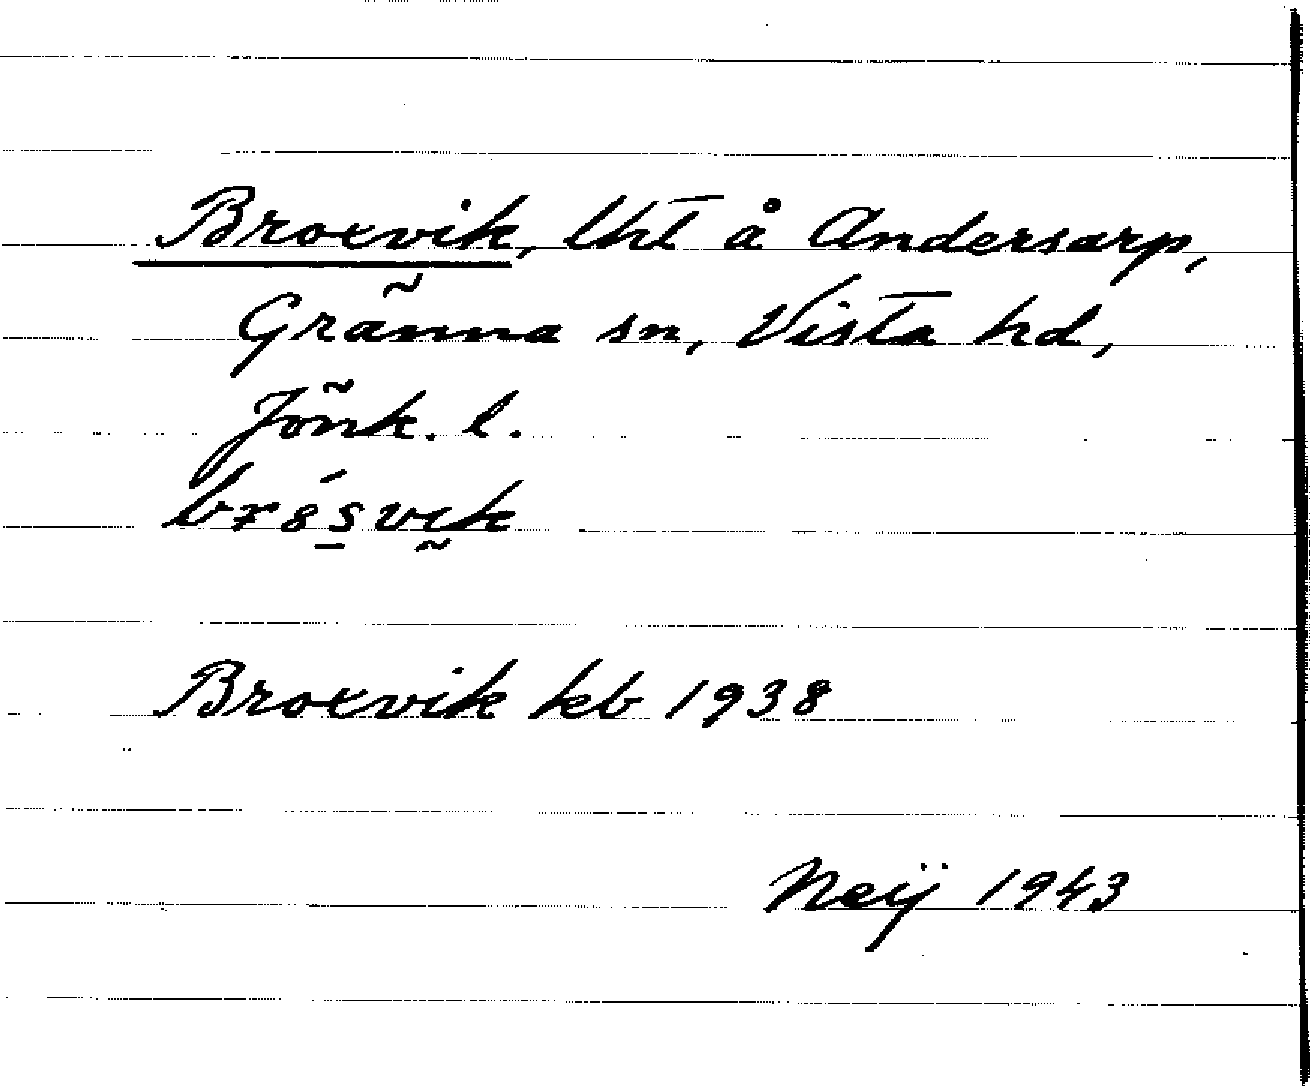 Broxvik, lht å Andersarp,
Gränna sn, Vista hd,
Jönk. l.
Broxvik kb 1938
Neij 1943